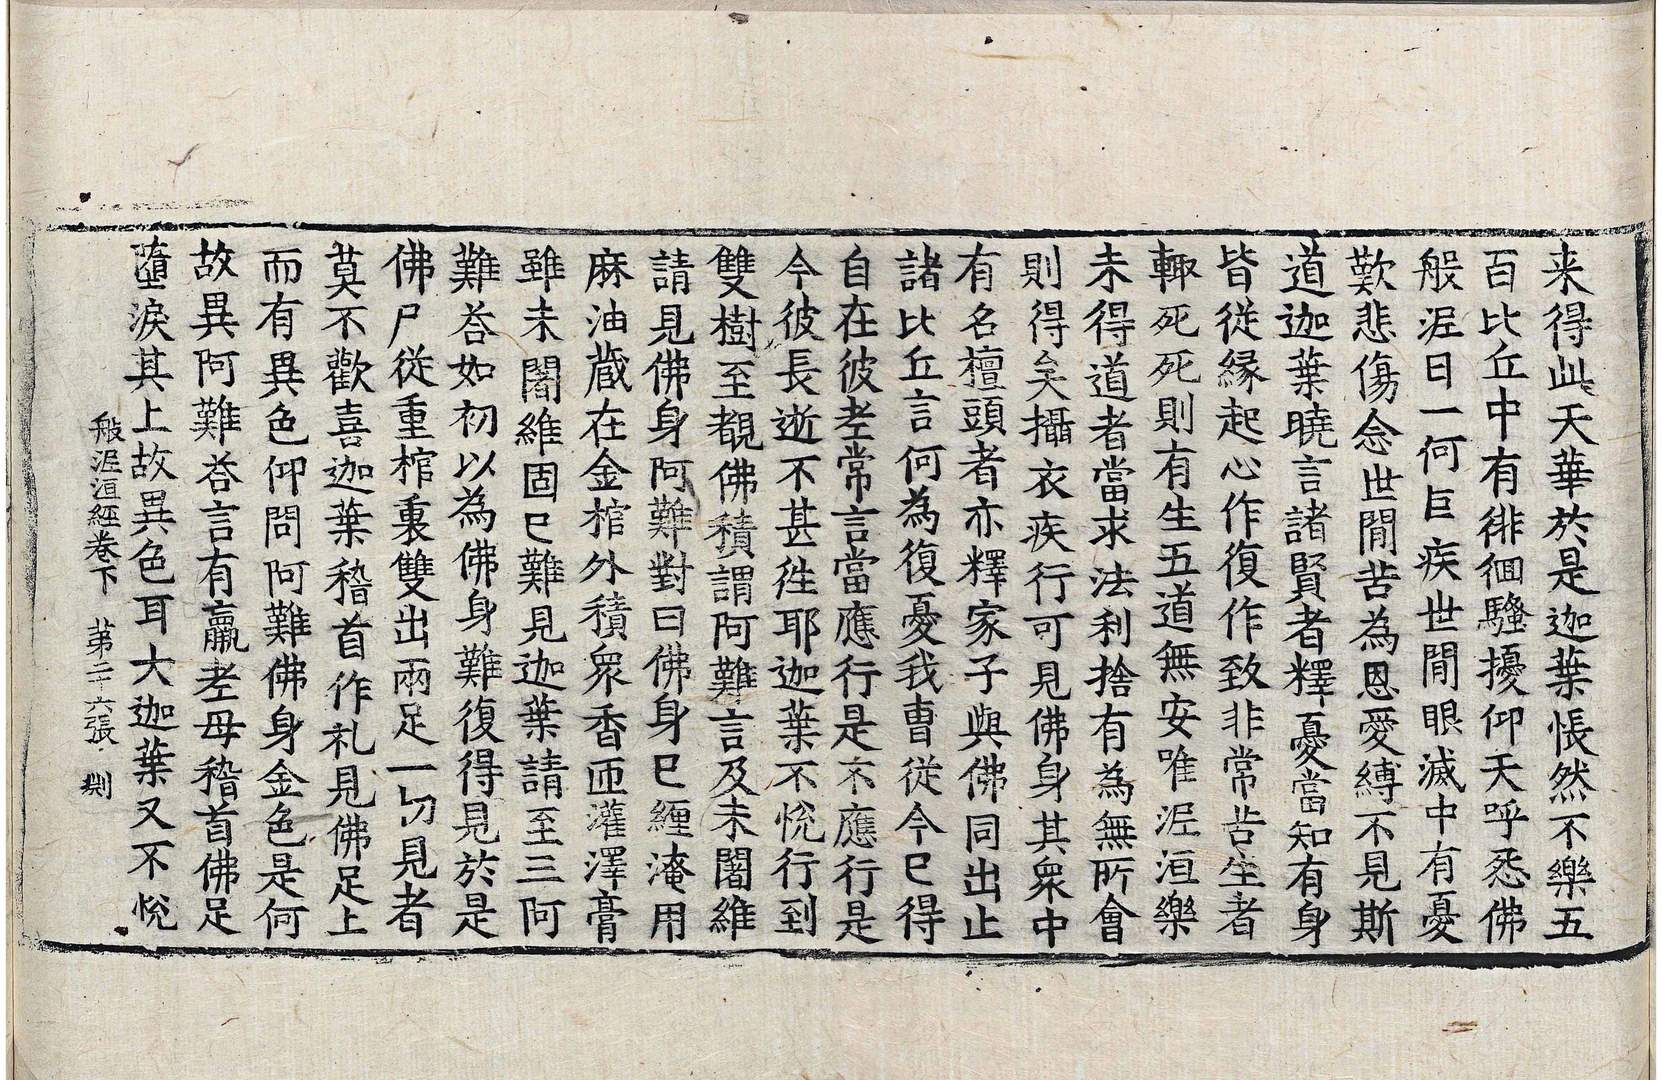 来得此天華於是迦葉悵然不樂五
百比丘中有徘徊騷擾仰天呼怨佛
般泥曰一何巨疾世閒眼滅中有憂
歎悲傷念世閒苦為恩愛縛不見斯
道迦葉曉言諸賢者釋憂當知有身
皆從緣起心作復作致非常苦生者
輙死死則有生五道無安唯泥洹樂
未得道者當求法利捨有為無所會
則得矣攝衣疾行可見佛身其衆中
有名檀頭者亦釋家子與佛同出止
諸比丘言何為復憂我曺從今已得
自在彼耂常言當應行是不應行是
今彼長逝不甚徃耶迦葉不悅行到
雙樹至覩佛積謂阿難言及未闍維
請見佛身阿難對曰佛身已纏淹用
麻油蔵在金棺外積衆香匝灌澤膏
雖未闍維固已難見迦葉請至三阿
難荅如初以為佛身難復得見於是
佛尸從重棺裏雙出兩足一切見者
莫不歡喜迦葉稽首作礼見佛足上
而有異色仰問阿難佛身金色是何
故異阿難荅言有羸老母稽首佛足
墮淚其上故異色耳大迦葉又不悅
般泥洹經卷下 第二十六張